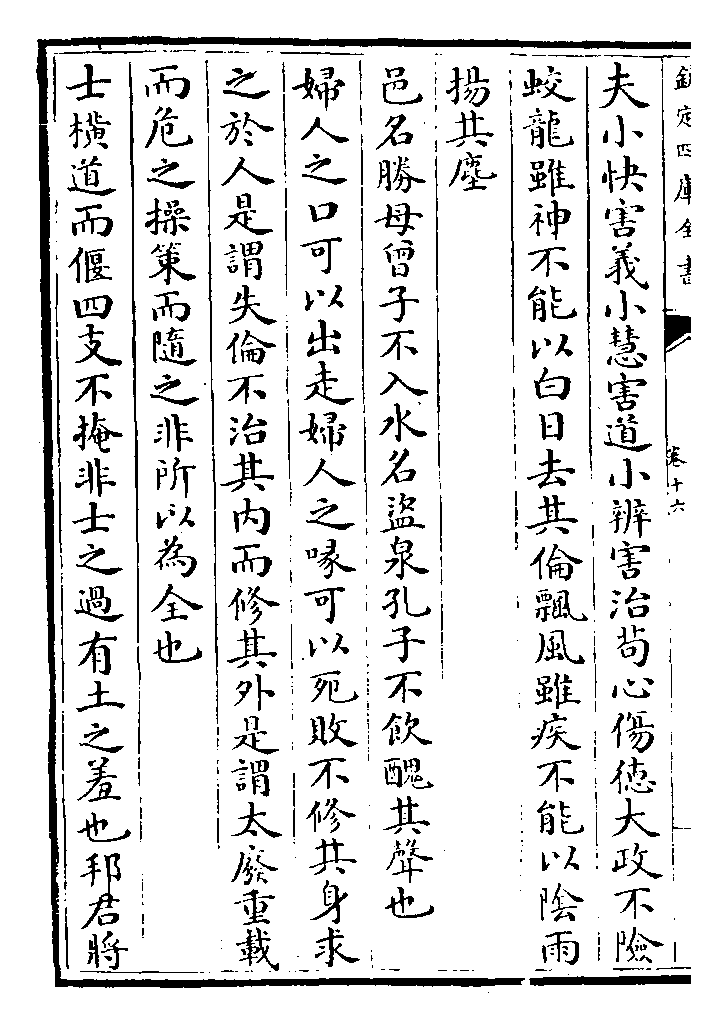 欽定四庫全書
卷十六
夫小快害義小慧害道小辨害治茍心傷徳大政不險
蛟龍雖神不能以白日去其倫飄風雖疾不能以隂雨
揚其塵
邑名勝母曾子不入水名盜泉孔子不飲醜其聲也
婦人之口可以出走婦人之喙可以死敗不修其身求
之於人是謂失倫不治其内而修其外是謂太廢重載
而危之操策而隨之非所以為全也
士橫道而偃四支不掩非士之過有土之羞也邦君將